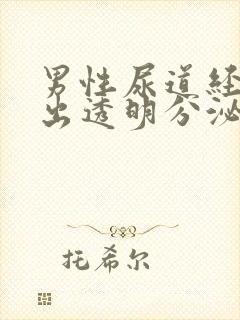 男性尿道经
出透明分泌
托希尔